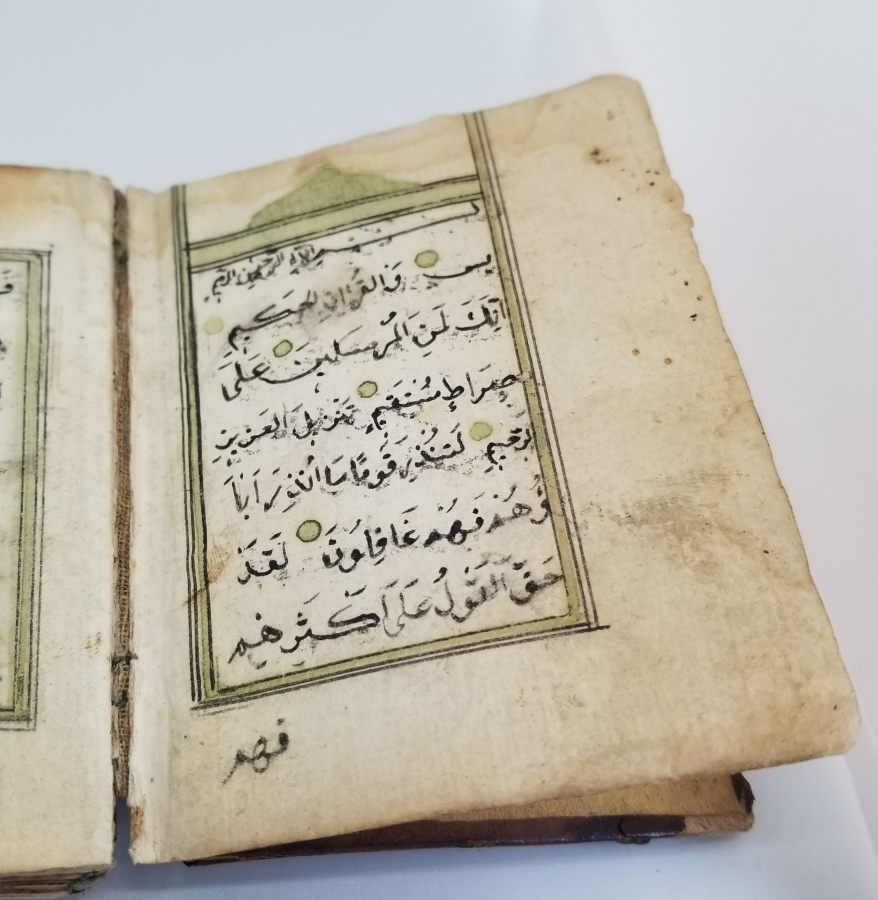 بسم الله الرحمن الرحيم
يس وَالقُرْاٰنِ الحَكيمِ
اِنَّكَ لَمِنَ المُرْسَلينَ عَلىَ
صِرَاطٍ مُسْتَقيمٍ تَنْزيلَ العَزيزِ
الرَحيمِ لِتُنْذِرَ قَومًا مَا اُنْذِرَ اٰبَا
ؤُهُمْ فَهُمْ غَافِلُونَ لَقَدْ
حَقَّ القَوْلُ عَلىَ اَكْثَرِهِم
فهم